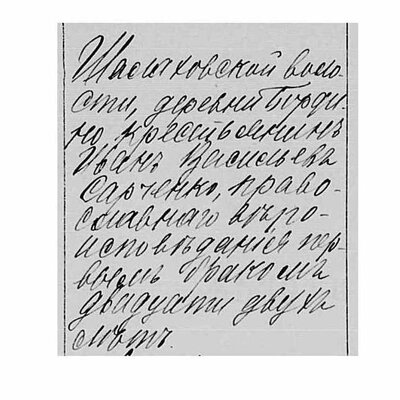 Шаслаковской воло-
сти, деревни Бурди-
но крестьянинъ
Иванъ Васильевъ
Сарченко, право-
славнаго вѣро-
исповѣданія пер-
вымъ бракомъ
двадцати двухъ
лѣтъ.